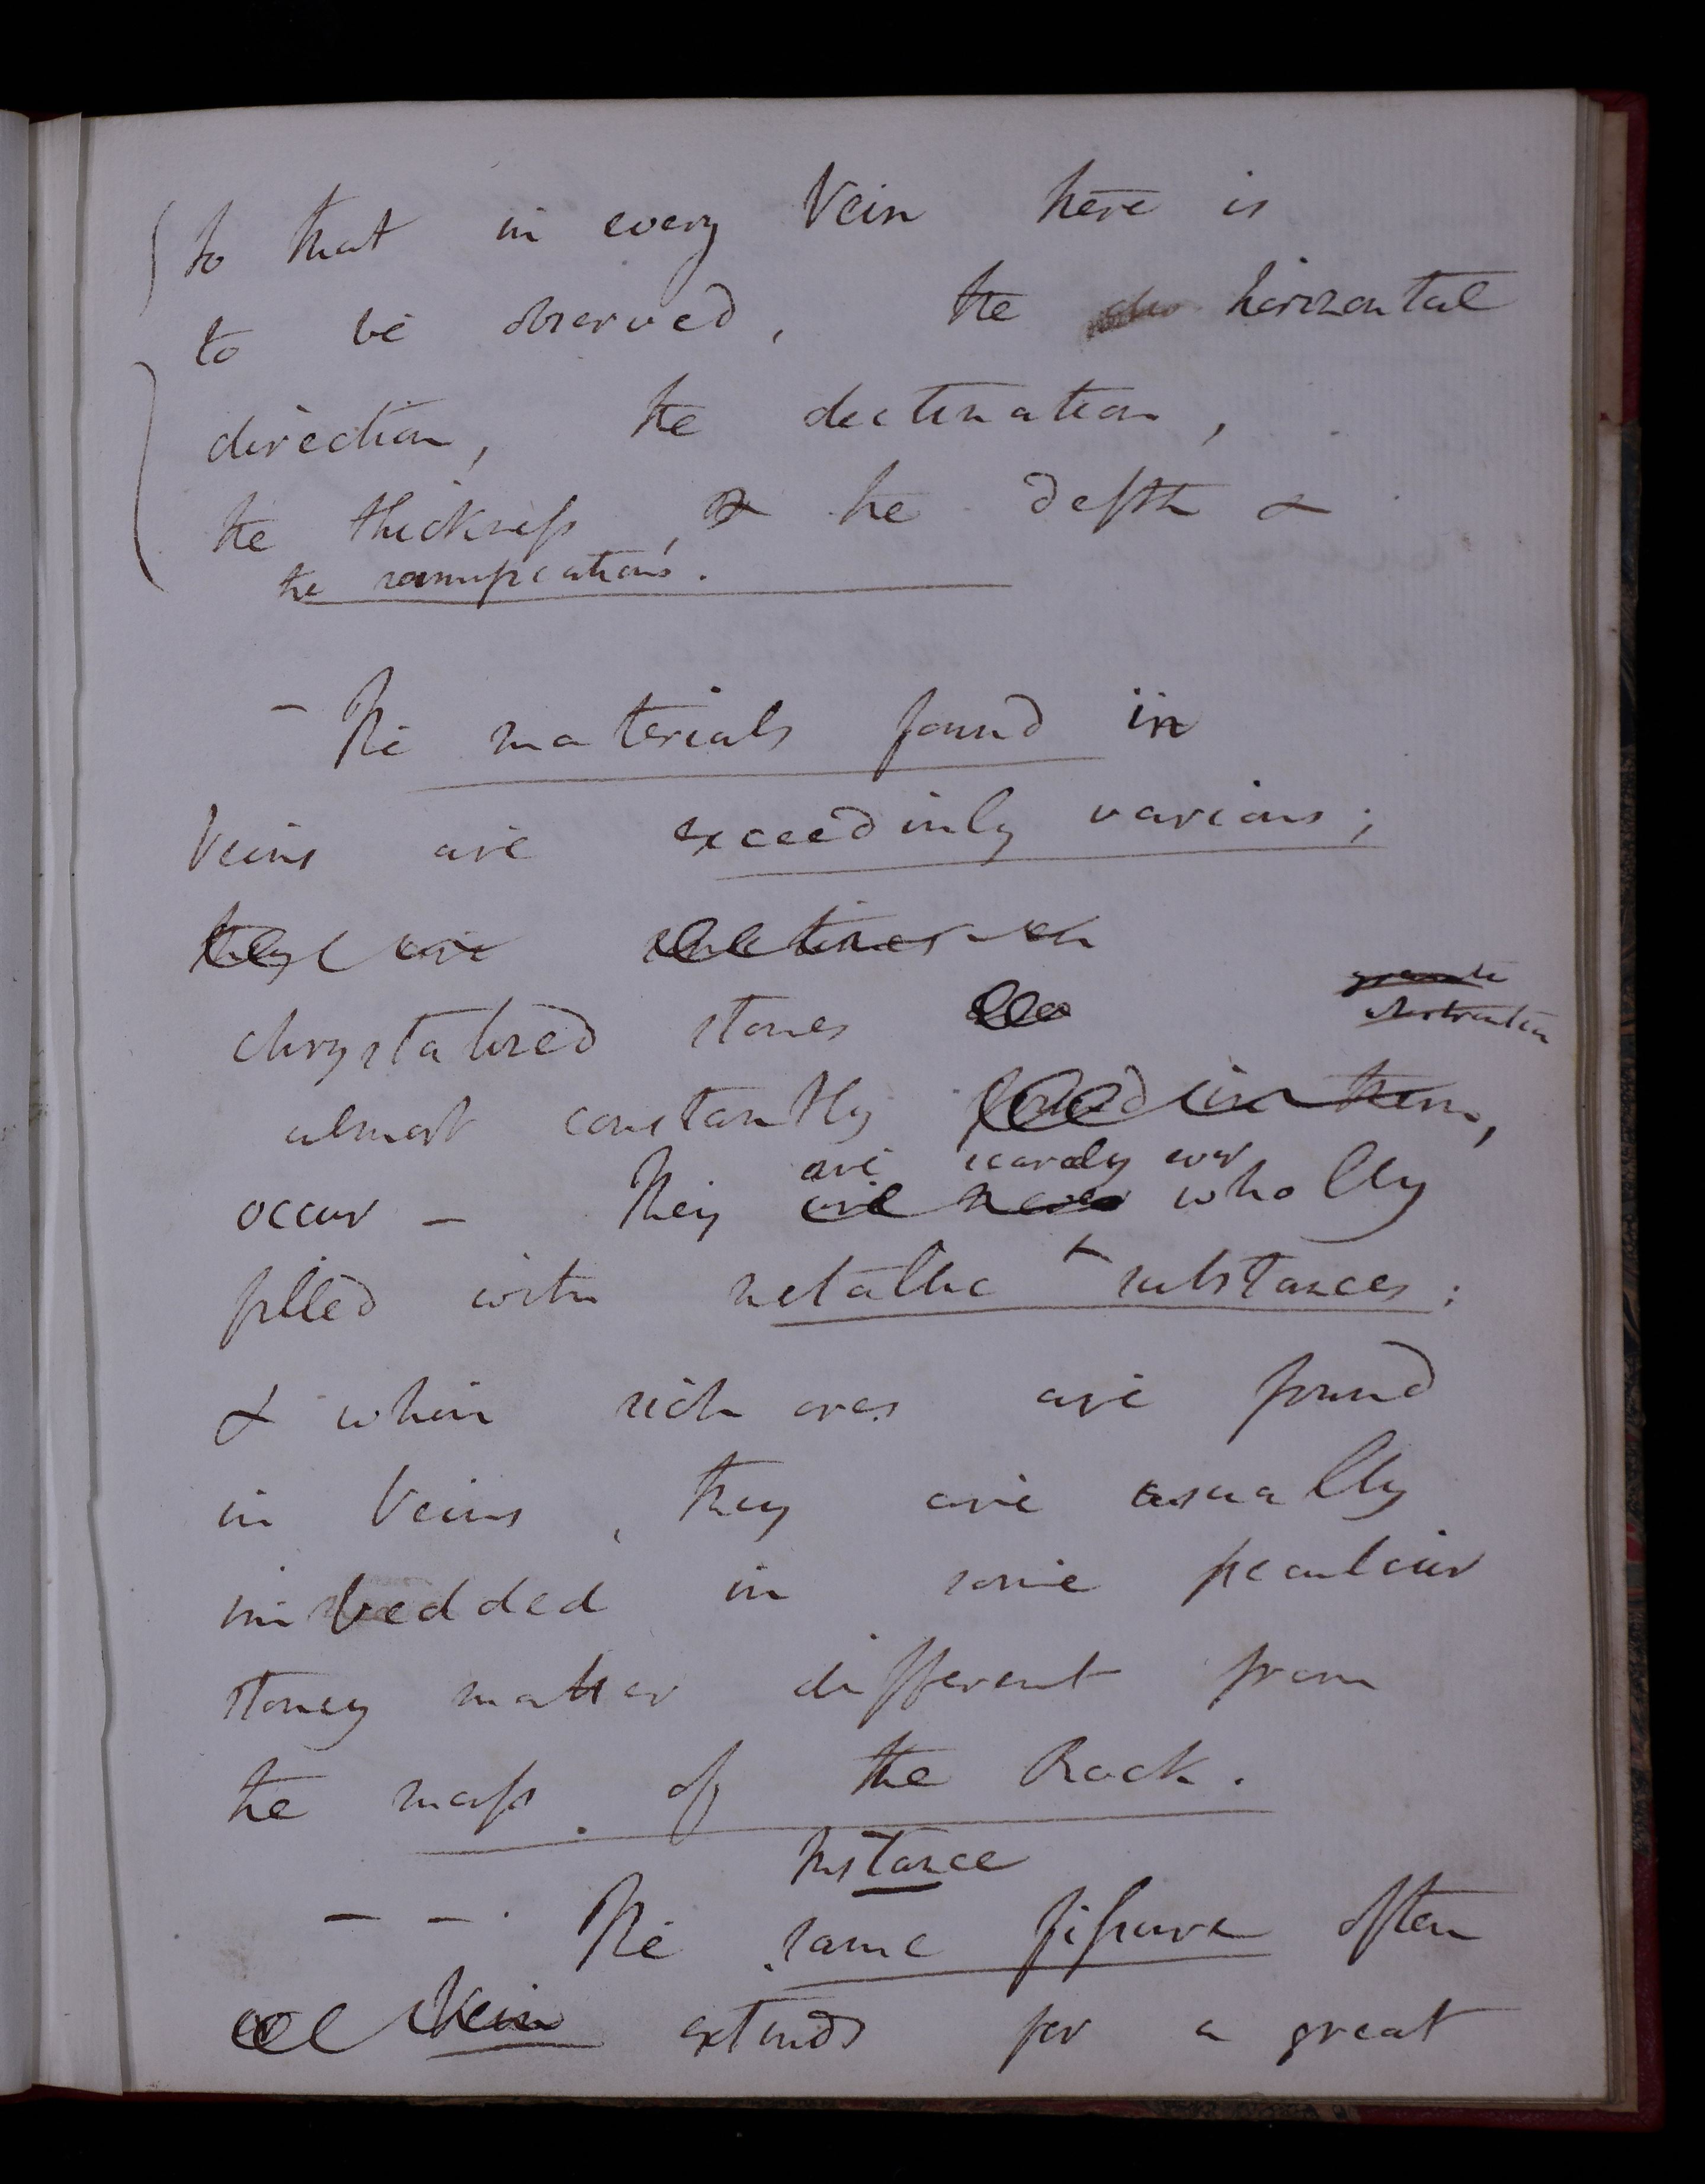 So that in every Vein there is
to be observed, the horizontal
direction, the declination,
the thickness, & the depth &
the ramifications.
– The materials found in
Veins are exceedinly various;
they are
chrystalized stones
almost constantly found in them,
occur – They are scarcely ever wholly
are never
filled with metallic substances:
& when rich ores are found
in Veins, they are usually
imbedded in some peculiar
stoney matter different from
the mass of the Rock.
Instance
– – . The same fissure often
or Vein extends for a great